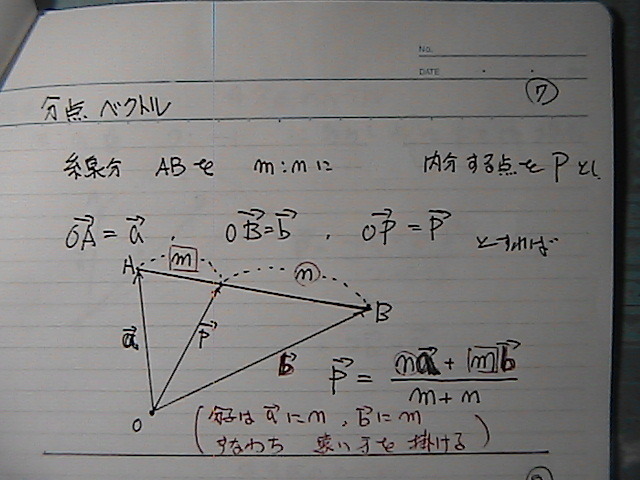 No.
DATE
⑦
分点 ベクトル
線分 ABを m:nに 内分する点を P とし
OA→ = a→ , OB→ = b→ , OP→ = p→ とすれば
A m n B
a→ p→ b→
p→ = (na→ + mb→) / (m+n)
O
(分子は a→ に n , b→ に m
すなわち 遠い方を 掛ける)